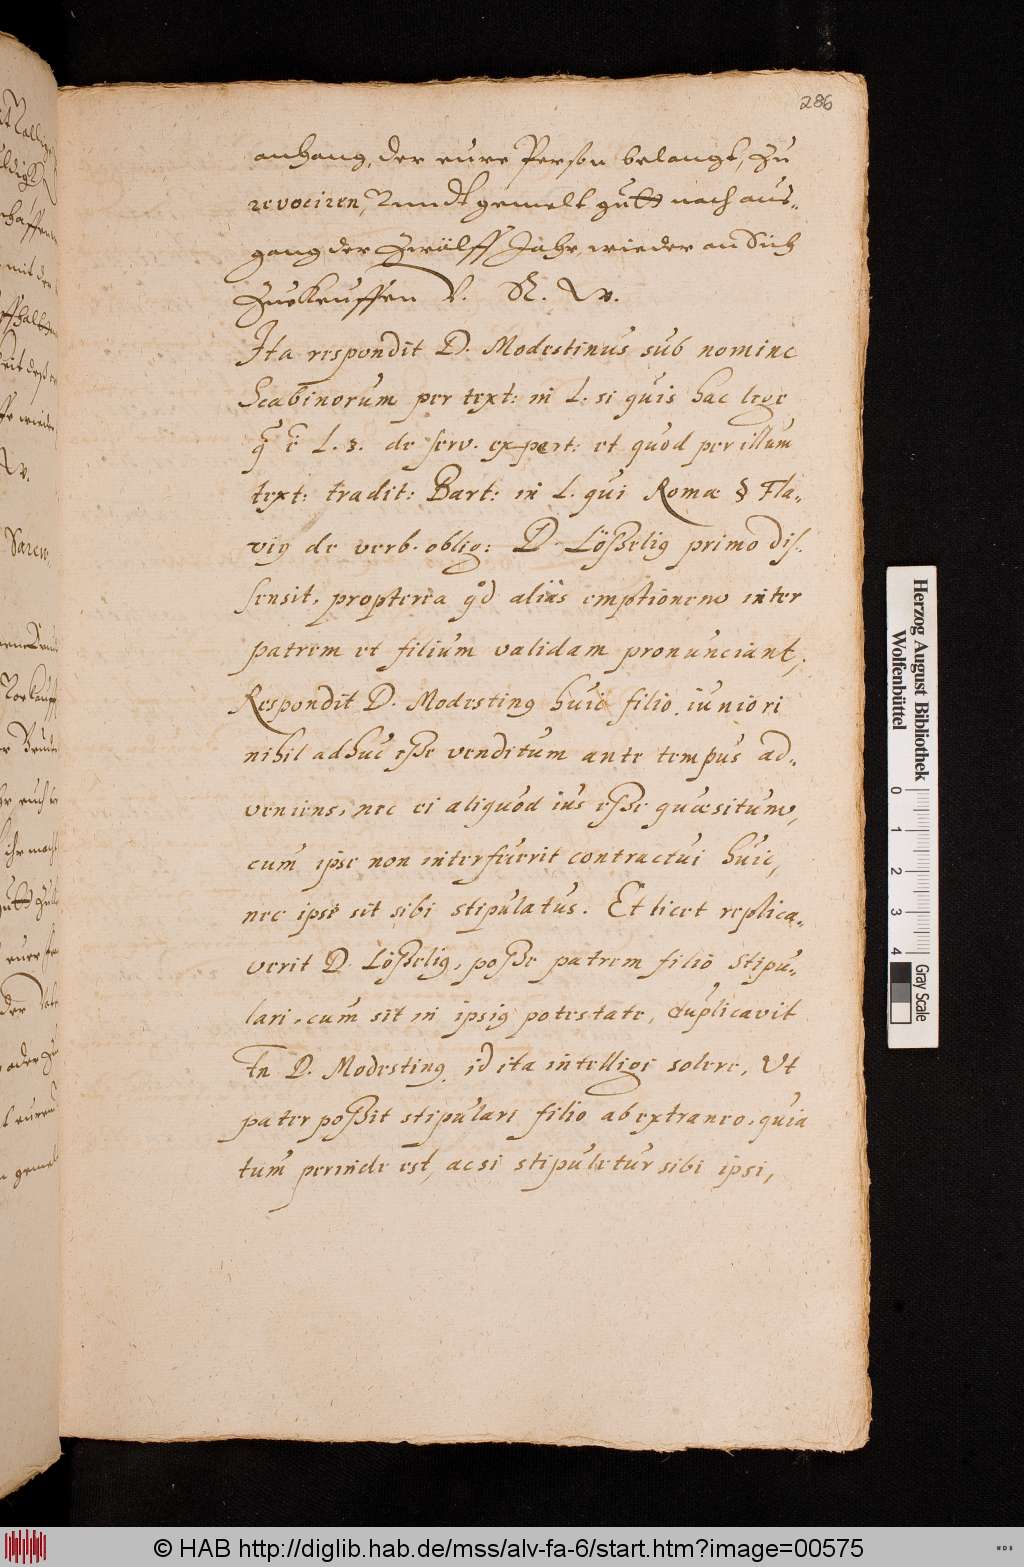 286
anhang, der eure Person belangt, zu
revociren, Vnndt gemelt gutt nach aus-
gang der Zwölff Jahr, wieder an Sich
Zuekeuffen V. R. W.
Ita respondit D. Modestinus sub nomine
Scabinorum per text: in L. si quis hac lege
q̃ ẽ L. 3. de serv. export: et quod per illum
text: tradit: Bart: in L. qui Romæ § Fla-
viꝯ de verb. oblig: D. Lößeliꝯ primo dis-
sensit, propterea qd̃ aliàs emptionem inter
patrem et filium validam pronunciant,
Respondit D. Modestinꝯ huic filio iuniori
nihil adhuc eße venditum ante tempus ad-
veniens, nec ei aliquod ius eße quæsitum,
cum ipse non interfuerit contractui huic,
nec ipse sit sibi stipulatus. Et licet replica-
verit D. Lößeliꝯ, poße patrem filio stipu-
lari, cum sit in ipsiꝯ potestate, duplicavit
Tn D. Modestinꝯ, id ita intelligi solere, Vt
pater poßit stipulari filio ab extraneo, quia
tum perinde est, ac si stipuletur sibi ipsi,
mit der
Sarcio,
Herzog August Bibliothek
Wolfenbüttel
0 1 2 3 4
Gray Scale
© HAB http://diglib.hab.de/mss/alv-fa-6/start.htm?image=00575